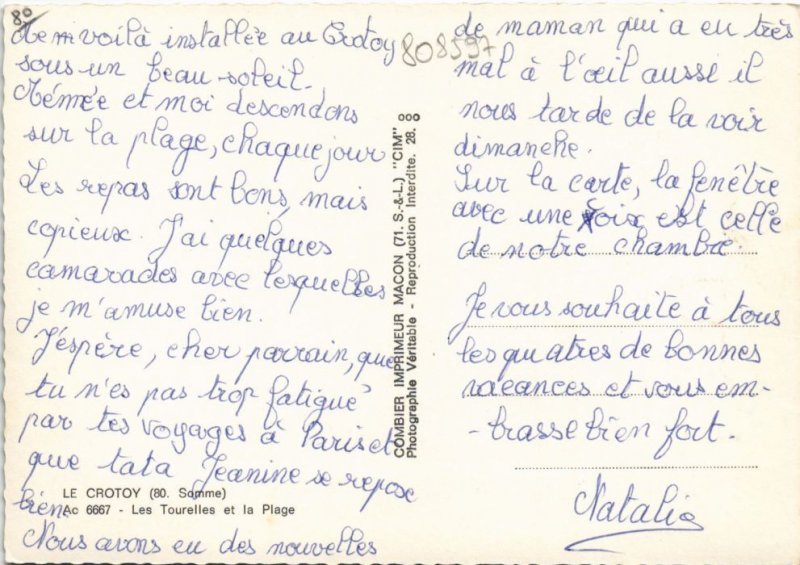 80
Me voilà installée au Crotoy
sous un beau soleil.
Mémée et moi descendons
sur la plage, chaque jour
Les repas sont bons, mais
copieux. J'ai quelques
camarades avec lesquelles
je m'amuse bien.
J'espère, cher parrain, que
tu n'es pas trop fatigué
par tes voyages à Paris et
que tata Jeanine se repose
bien.
Nous avons eu des nouvelles
LE CROTOY (80. Somme)
Ac 6667 - Les Tourelles et la Plage
COMBIER IMPRIMEUR MACON (71. S.-&-L.) "CIM"
Photographie Véritable - Reproduction Interdite. 28.
808597
de maman qui a eu très
mal à l'œil aussi il
nous tarde de la voir
dimanche.
Sur la carte, la fenêtre
avec une croix est celle
de notre chambre.
Je vous souhaite à tous
les quatres de bonnes
vacances et vous em-
-brasse bien fort.
Natalie